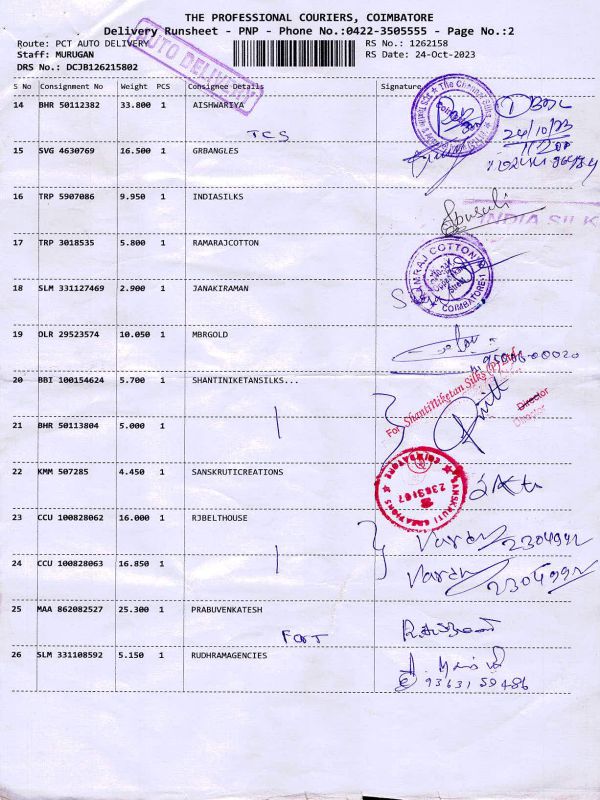 THE PROFESSIONAL COURIERS, COIMBATORE
Delivery Runsheet - PNP - Phone No.:0422-3505555 - Page No.:2
Route: PCT AUTO DELIVERY
RS No.: 1262158
Staff: MURUGAN
RS Date: 24-Oct-2023
DRS No.: DCJB126215802
AUTO DELIVERY
S No Consignment No Weight PCS Consignee Details Signature
14 BHR 50112382 33.800 1 AISHWARIYA
TCS
24/10/23
15 SVG 4630769 16.500 1 GRBANGLES
16 TRP 5907086 9.950 1 INDIASILKS
INDIA SILK
17 TRP 3018535 5.800 1 RAMARAJCOTTON
RAMRAJ COTTON
COIMBATORE-1
18 SLM 331127469 2.900 1 JANAKIRAMAN
19 DLR 29523574 10.050 1 MBRGOLD
20 BBI 100154624 5.700 1 SHANTINIKETANSILKS...
For ShantiNiketan Silks (P) Ltd
Director
Director
21 BHR 50113804 5.000 1
22 KMM 507285 4.450 1 SANSKRUTICREATIONS
SANSKRUTI CREATIONS
COIMBATORE
2303107
23 CCU 100828062 16.000 1 RJBELTHOUSE
2304992
24 CCU 100828063 16.850 1
2304992
25 MAA 862082527 25.300 1 PRABUVENKATESH
Fort
26 SLM 331108592 5.150 1 RUDHRAMAGENCIES
93631 59486